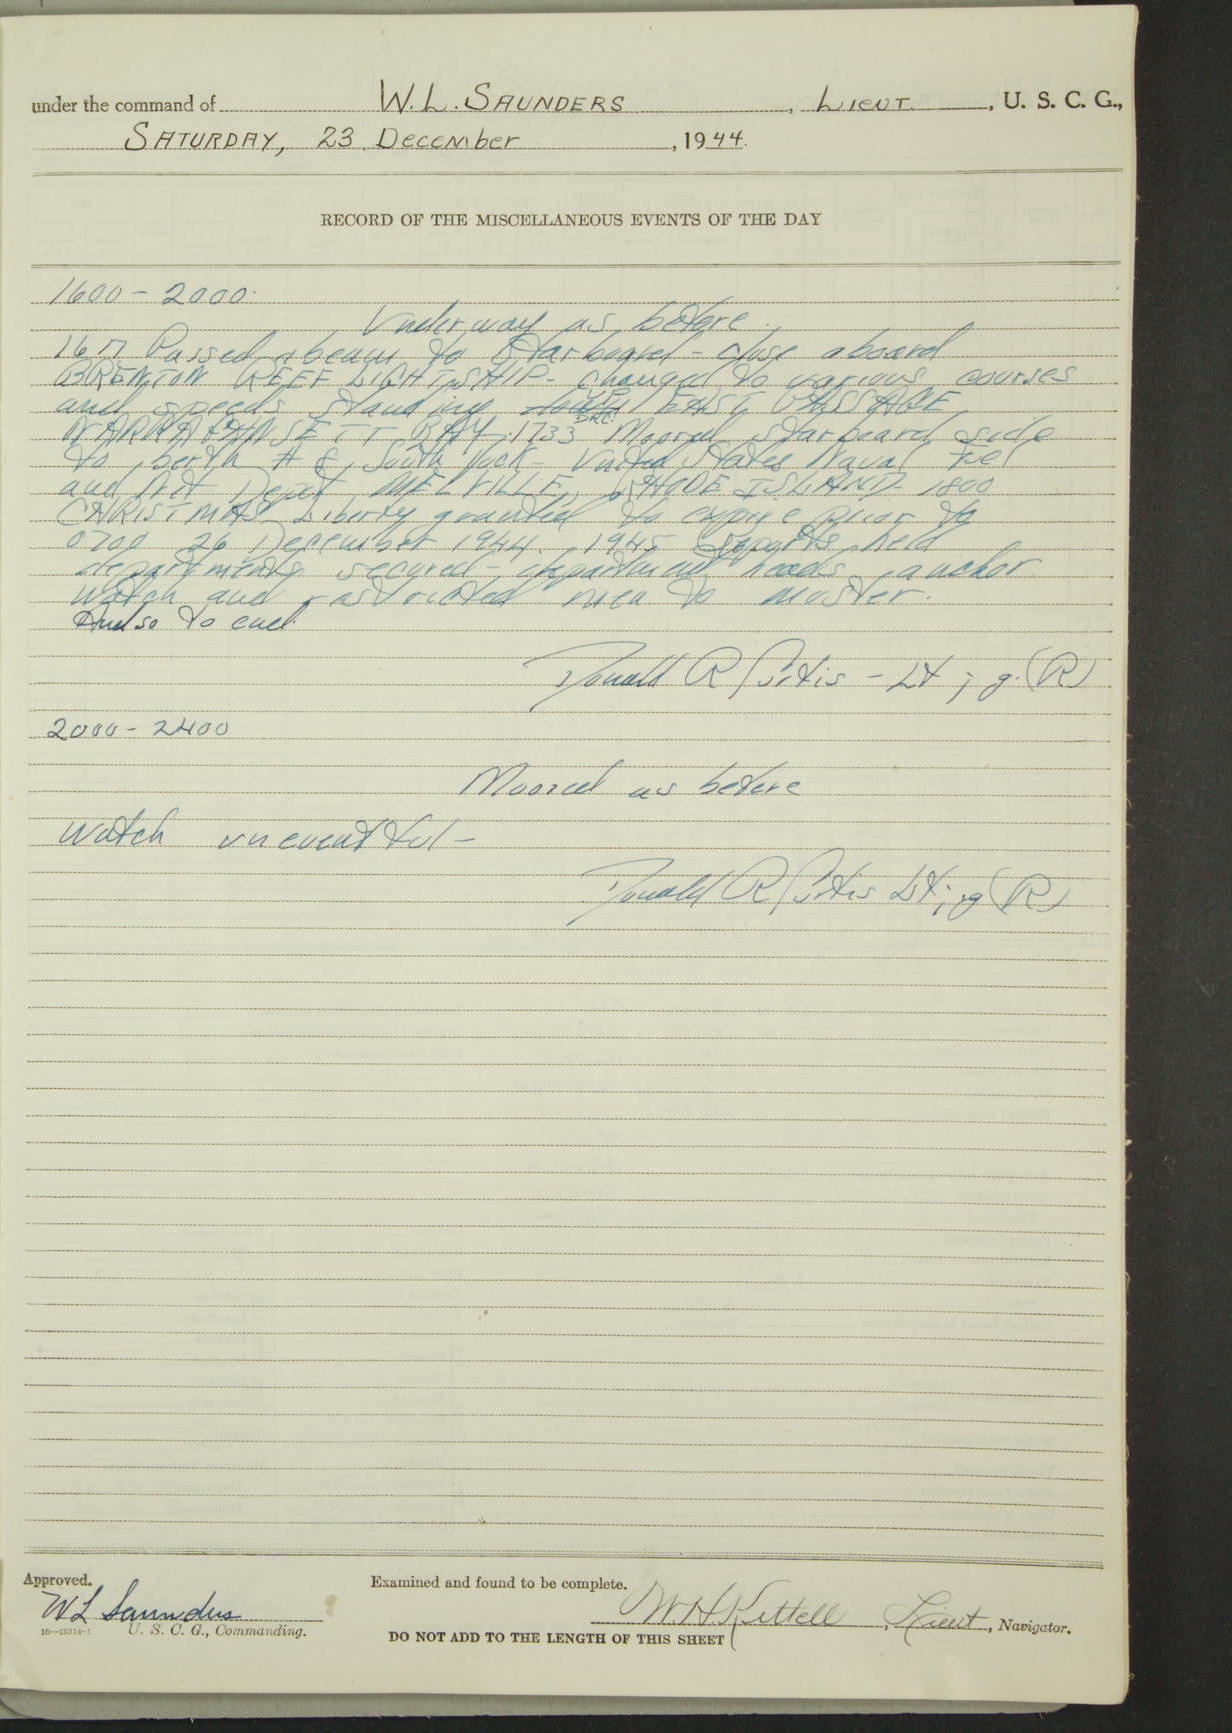 under the command of W. L. SAUNDERS, LIEUT., U. S. C. G.,
SATURDAY, 23 December, 1944.
RECORD OF THE MISCELLANEOUS EVENTS OF THE DAY
1600 - 2000.
Underway as before.
Passed abeam to Starboard - close aboard
BRENTON REEF LIGHTSHIP - changed to various courses
and speeds standing up EAST PASSAGE
DRC.
NARRAGANSETT BAY. 1733 Moored starboard side
to berth # 8, South Dock - United States Naval Fuel
and Net Depot, MELVILLE, RHODE ISLAND - 1800
CHRISTMAS Liberty granted to expire prior to
0700 26 December 1944. 1945 Reports held
departments secured - department heads, anchor
watch and restricted men to muster.
And so to end.
Donald R Curtis - Lt; jg. (R)
2000 - 2400
Moored as before
Watch uneventful -
Donald R Curtis Lt; jg (R)
Approved.
W L Saunders
16-13314-1 U. S. C. G., Commanding.
Examined and found to be complete.
W. H. Kittell, Lieut, Navigator.
DO NOT ADD TO THE LENGTH OF THIS SHEET